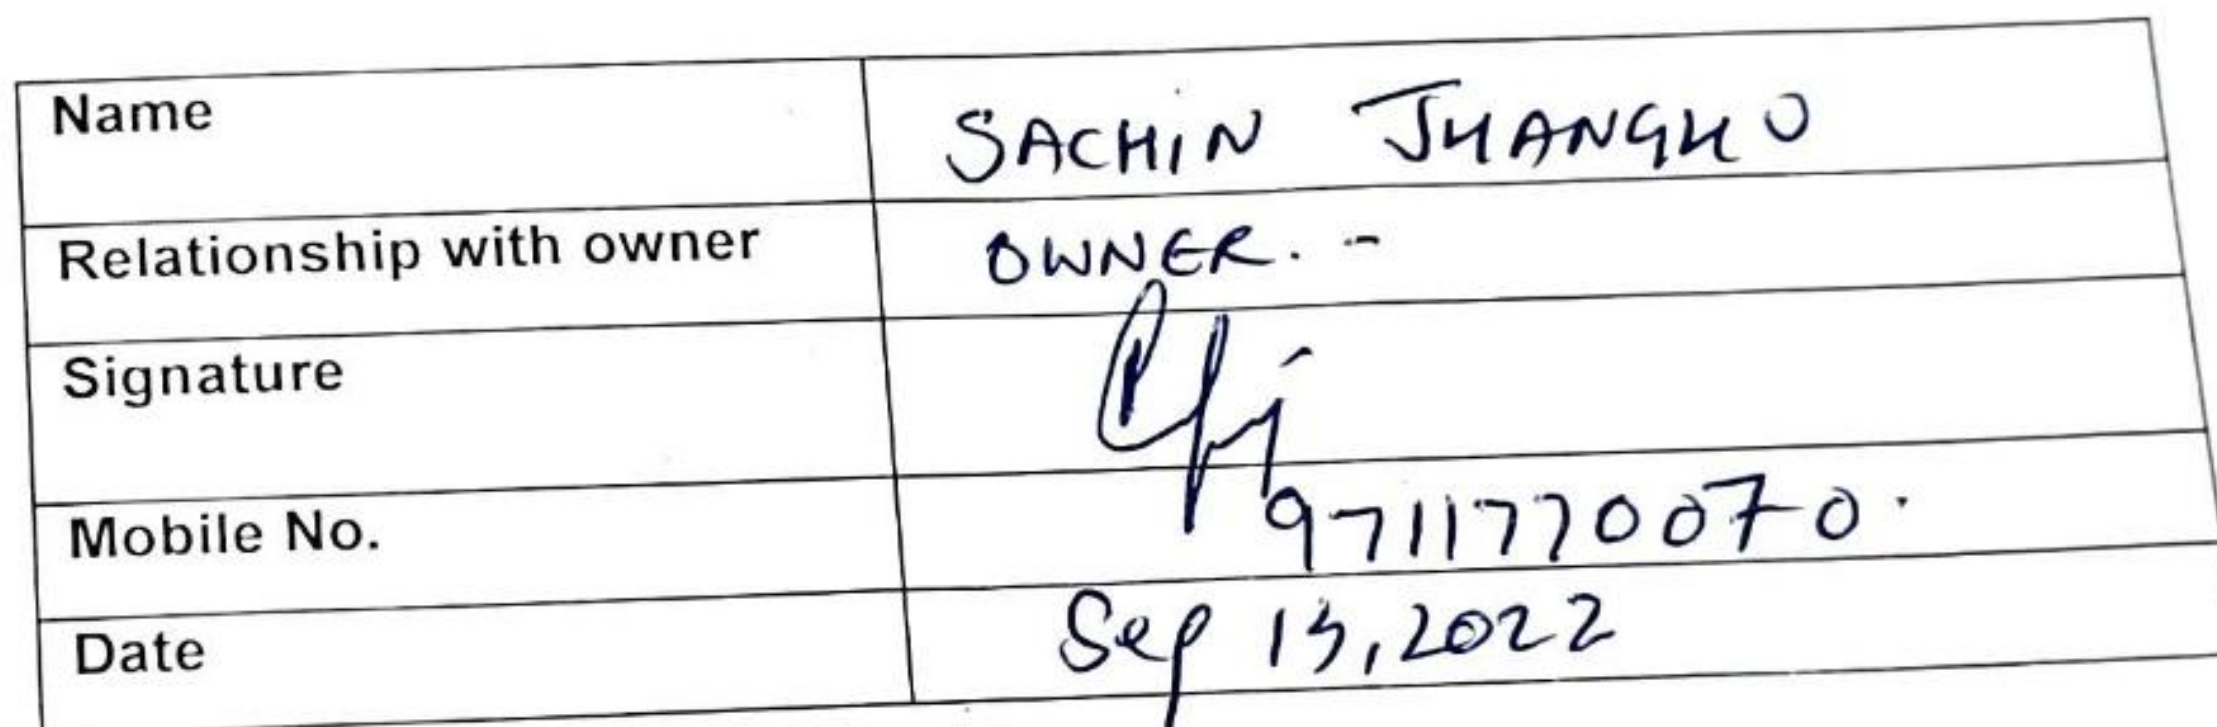 Name SACHIN JHANGHU
Relationship with owner OWNER. -
Signature
Mobile No. 9711770070.
Date Sep 13, 2022